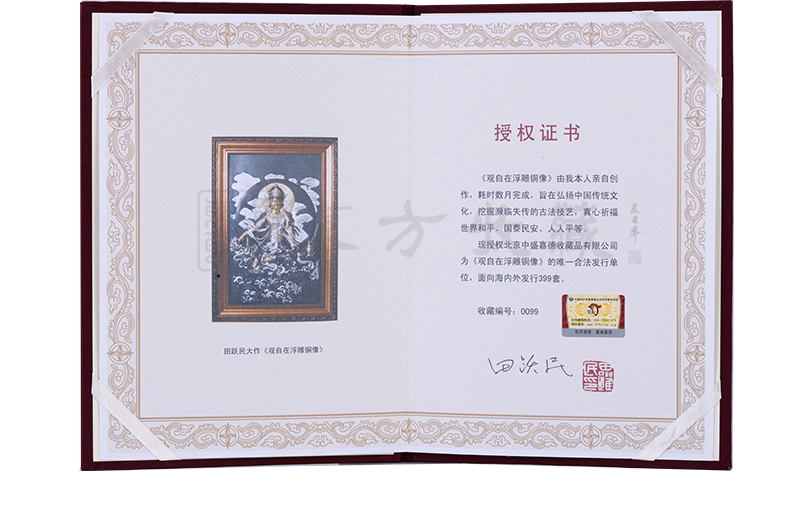 田跃民大作《观自在浮雕铜像》
授权证书
《观自在浮雕铜像》由我本人亲自创
作，耗时数月完成，旨在弘扬中国传统文
化，挖掘濒临失传的古法技艺，真心祈福
世界和平、国泰民安、人人平等。
现授权北京中盛嘉德收藏品有限公司
为《观自在浮雕铜像》的唯一合法发行单
位，面向海内外发行399套。
收藏编号：0099
田跃民
东方收藏